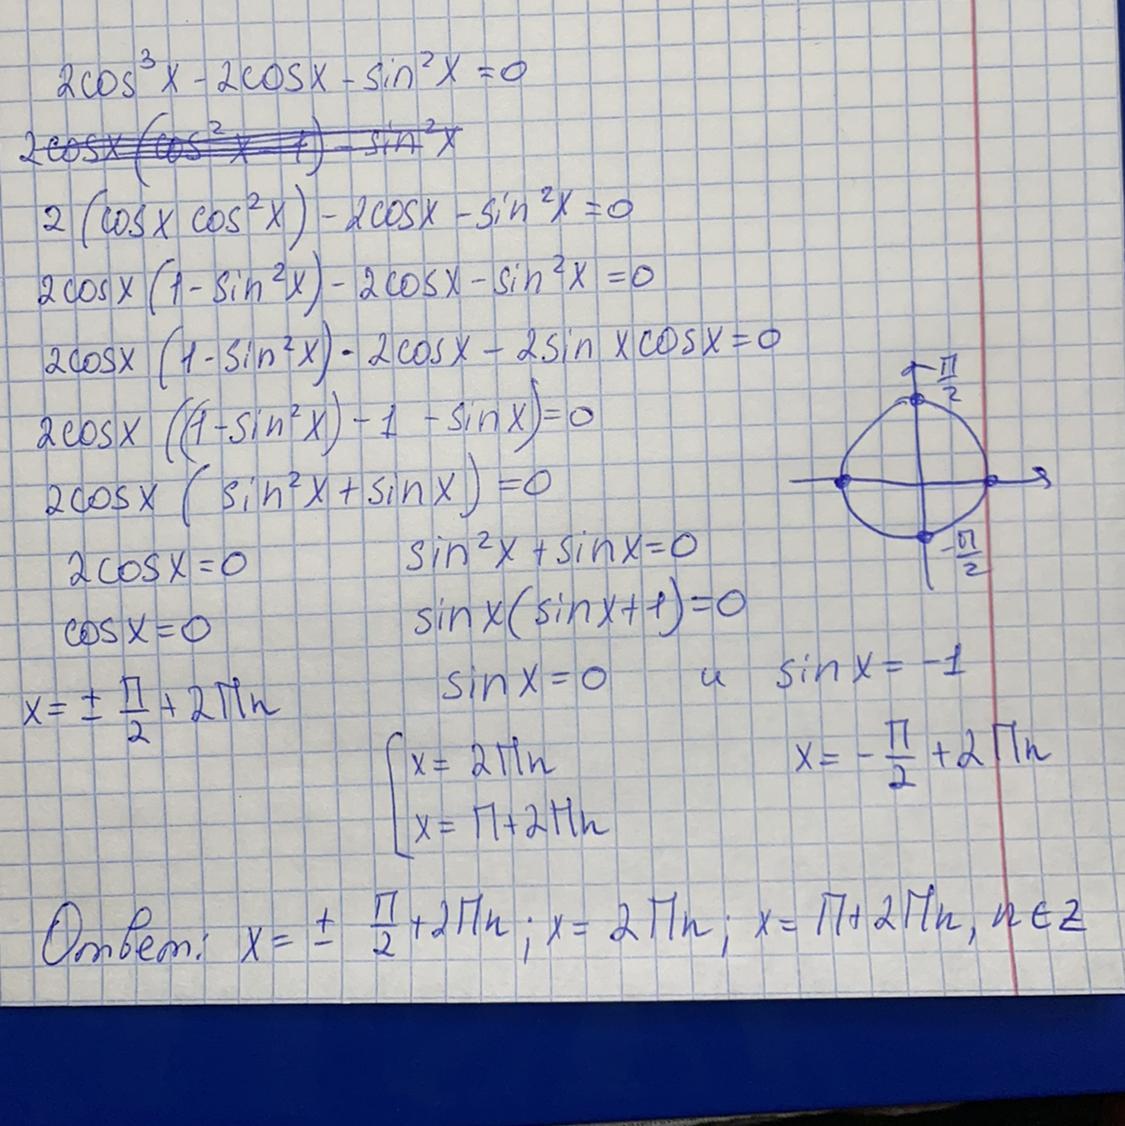 2cos³x - 2cosx - sin²x = 0
2cosx (cos²x - 1) - sin²x
2 (cosx cos²x) - 2cosx - sin²x = 0
2cosx (1 - sin²x) - 2cosx - sin²x = 0
2cosx (1 - sin²x) - 2cosx - 2sin x cosx = 0
2cosx ((1 - sin²x) - 1 - sinx) = 0
2cosx ( sin²x + sinx ) = 0
2cosx = 0 sin²x + sinx = 0
cosx = 0 sinx (sinx + 1) = 0
x = ± П/2 + 2Пn sinx = 0 и sinx = -1
[ x = 2Пn x = - П/2 + 2Пn
x = П + 2Пn
П/2
-П/2
Ответ: x = ± П/2 + 2Пn ; x = 2Пn ; x = П + 2Пn, n ∈ Z